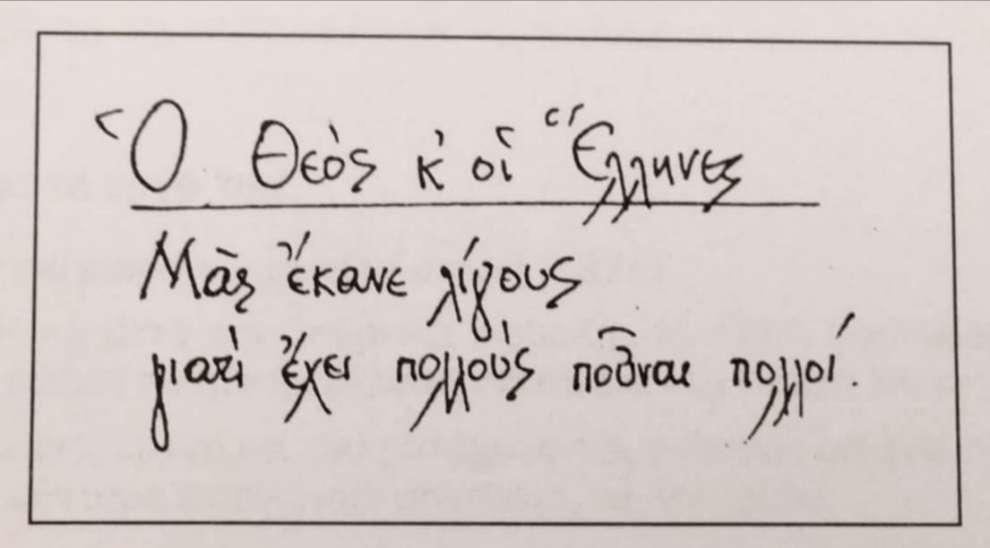 Ὁ Θεὸς κ' οἱ Ἕλληνες
Μᾶς ἔκανε λίγους
γιατὶ ἔχει πολλοὺς ποὖναι πολλοί.